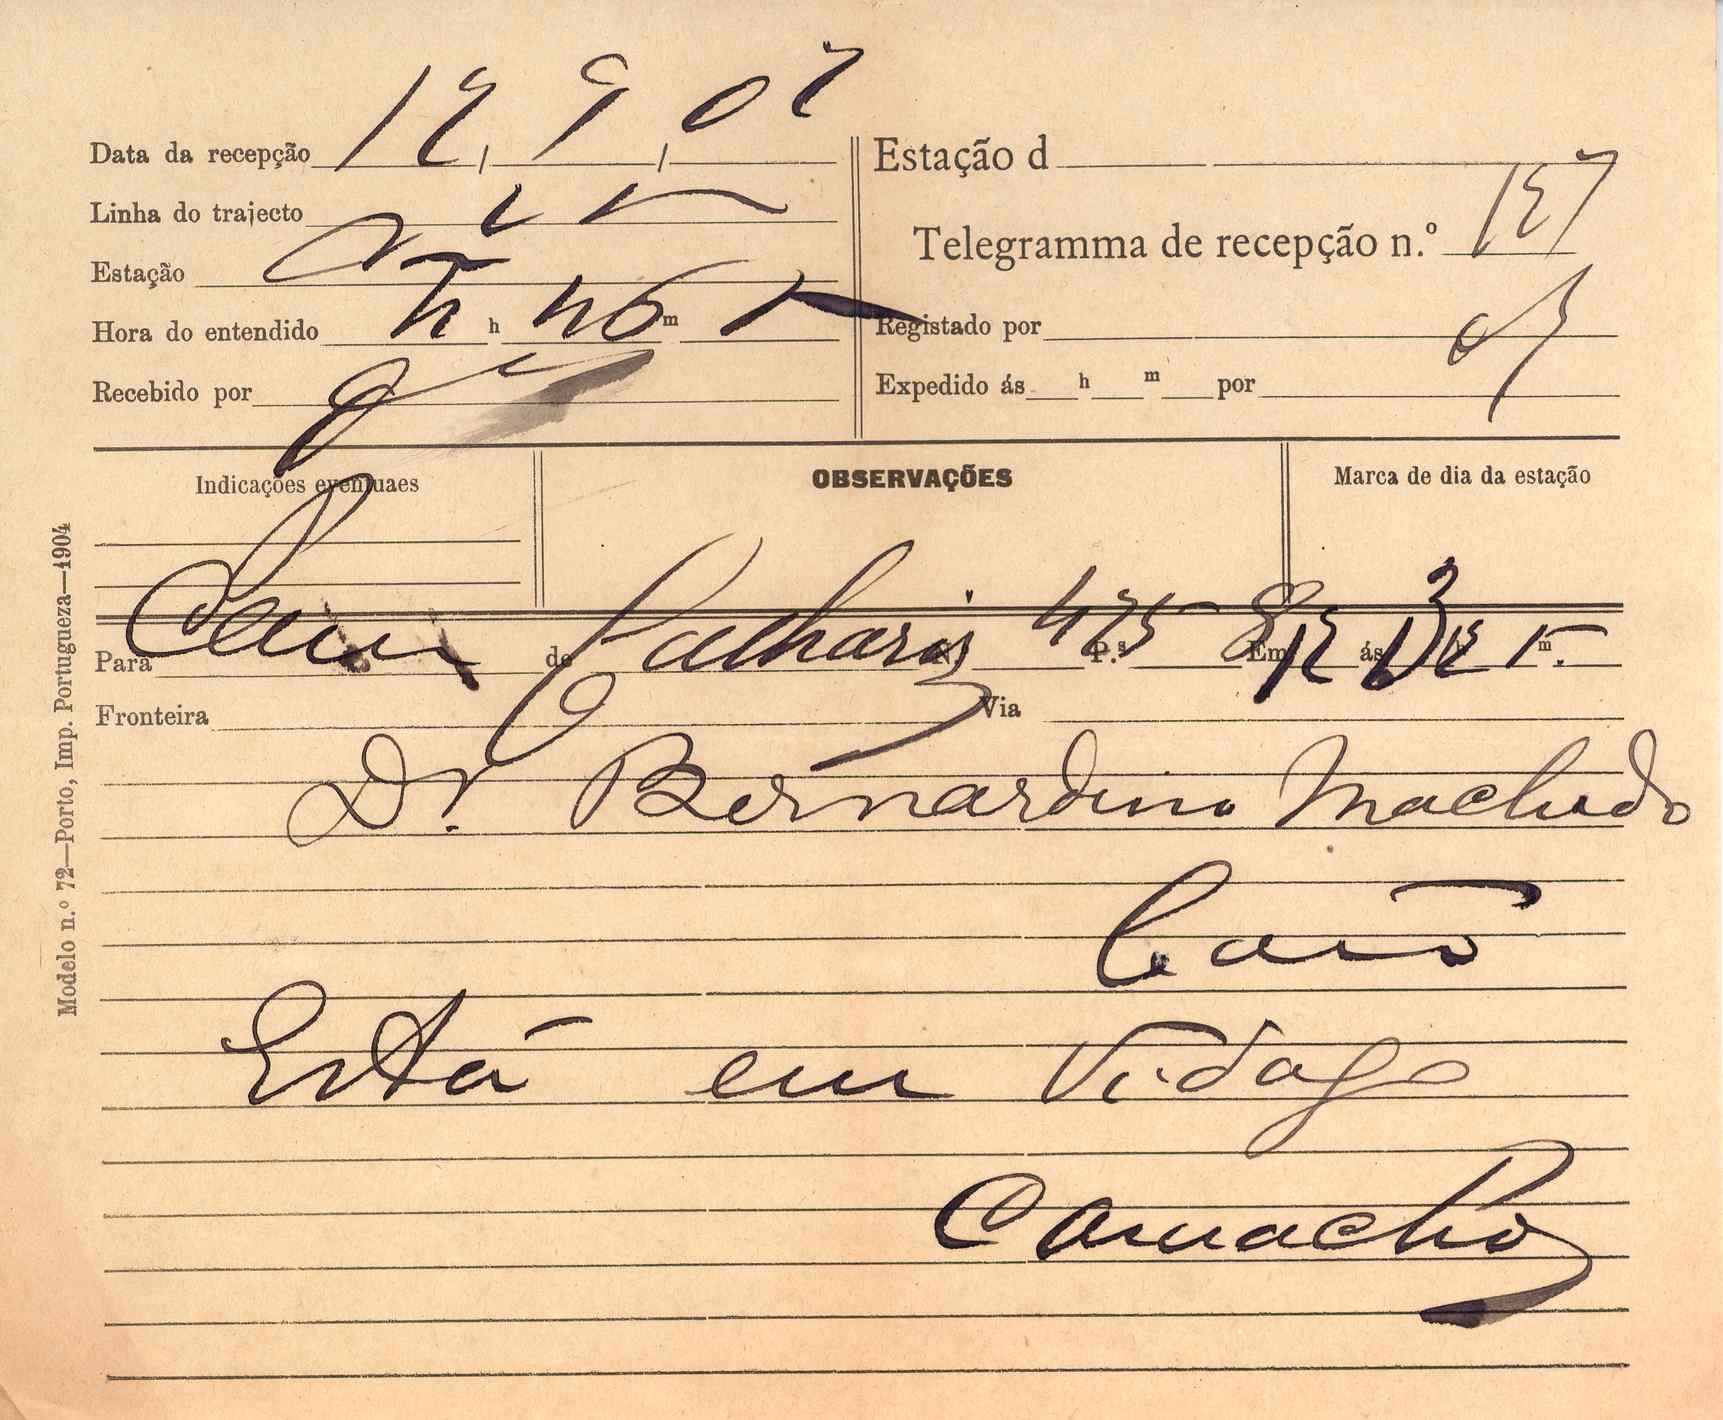 Data da recepção 12, 9, 07
Linha do trajecto
Estação
Hora do entendido h m
Recebido por
Estação d
Telegramma de recepção n.º 127
Registado por
Expedido ás h m por
Indicações eventuaes
OBSERVAÇÕES
Marca de dia da estação
Para de Calhariz N.º 425 P.ªs 8 Em 12 ás h m
Fronteira Via
Dr. Bernardino Machado
Está em Vidago
Camacho
Modelo n.º 72—Porto, Imp. Portugueza—1904